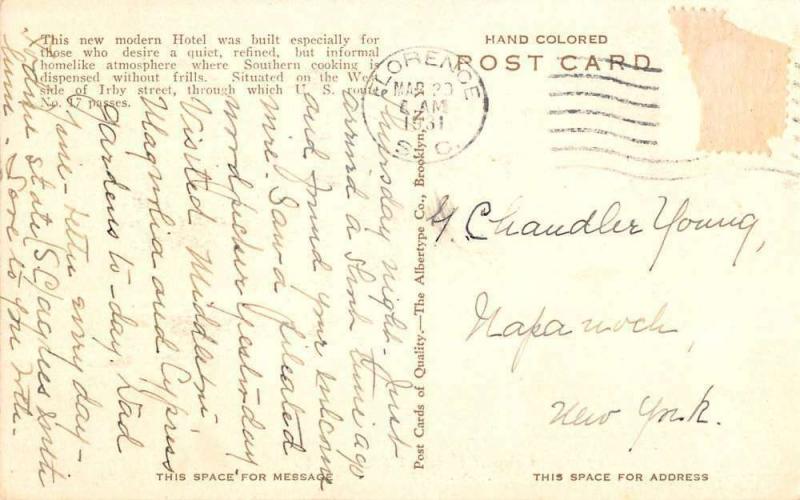 This new modern Hotel was built especially for
those who desire a quiet, refined, but informal
homelike atmosphere where Southern cooking is
dispensed without frills. Situated on the West
side of Irby street, through which U. S. route
No. 17 passes.
HAND COLORED
POST CARD
FLORENCE
MAR 20
6 AM
1931
S. C.
Thursday night - Just
arrived a short time ago
and found your welcome
wire. Saw a pileated
woodpecker yesterday
Visited Middleton,
Magnolia and Cypress
Gardens to-day. Had
fine - weather every day -
State (S.C.) agrees with
Love to you both.
Post Cards of Quality.—The Albertype Co., Brooklyn, N. Y.
G. Chandler Young,
Napanoch,
New York.
THIS SPACE FOR MESSAGE
THIS SPACE FOR ADDRESS